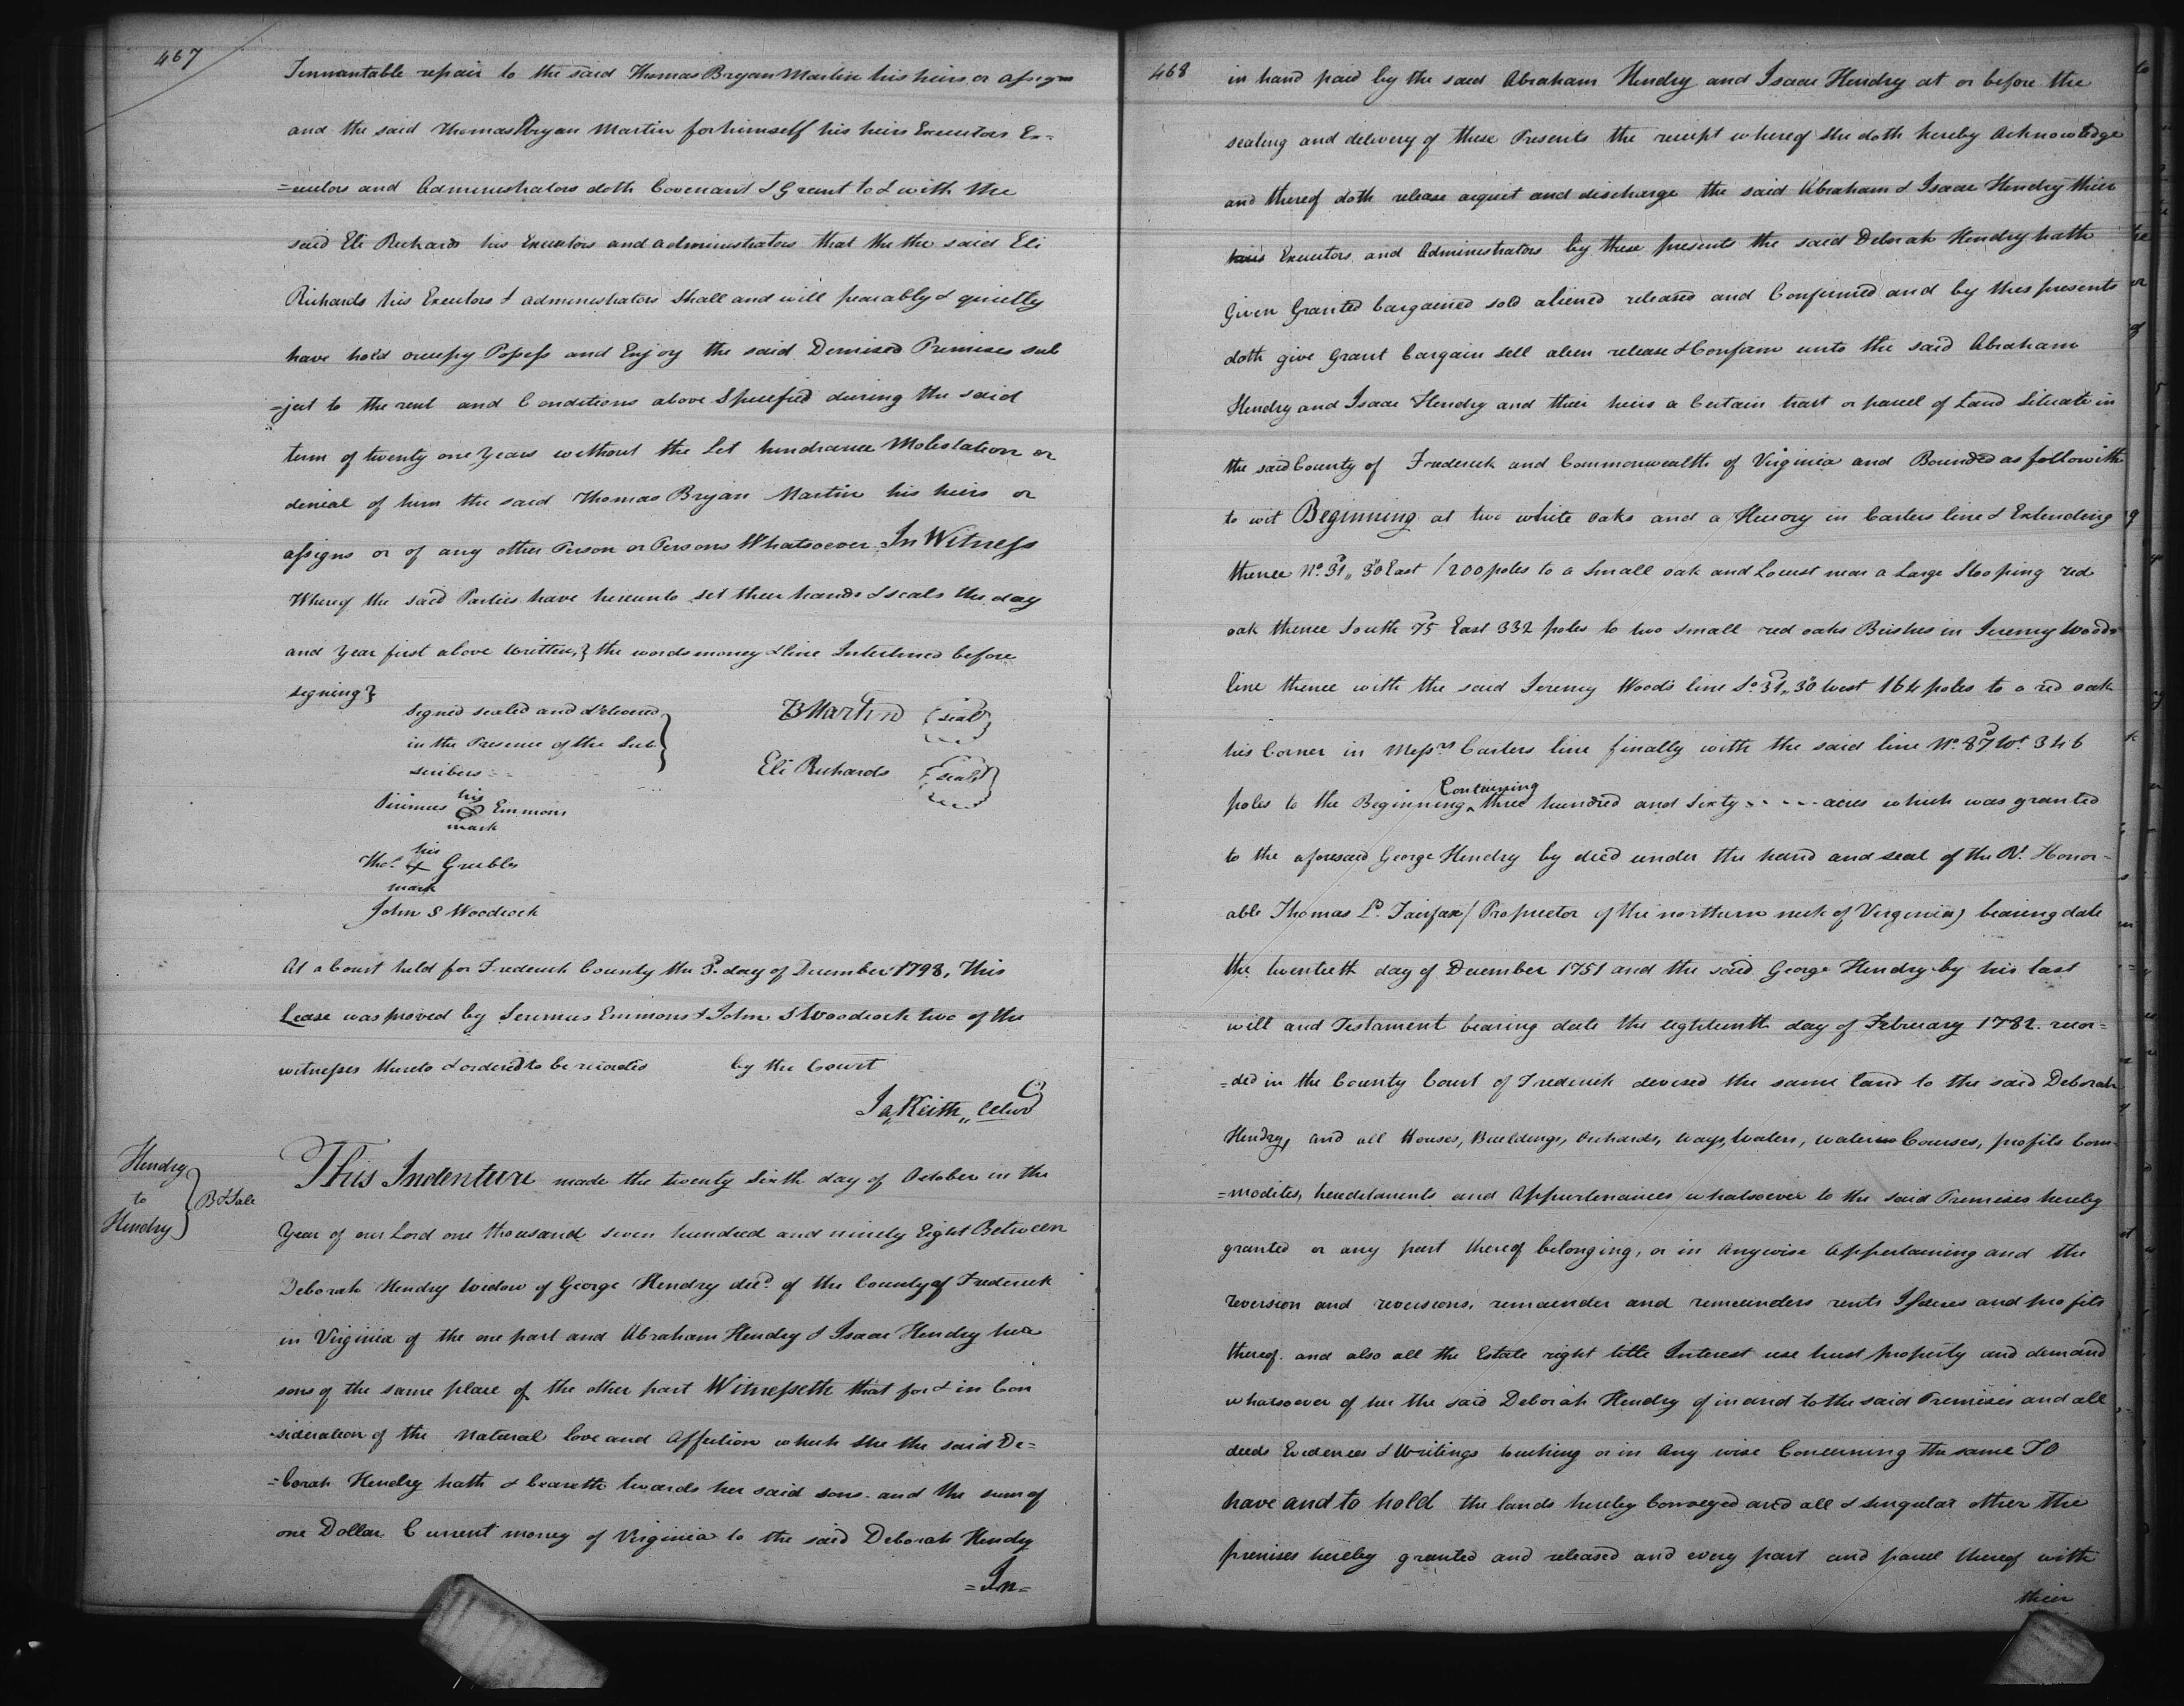 467
Tennantable repair to the said Thomas Bryan Martin his heirs or assigns
and the said Thomas Bryan Martin for himself his heirs Executors Ex=
=ecutors and Administrators doth Covenant & Grant to & with the
said Eli Richards his Executors and administrators that the the said Eli
Richards his Executors & administrators Shall and will peacably & quietly
have hold occupy Possess and Enjoy the said Demised Premises sub
=ject to the rent and Conditions above Specified during the said
term of twenty one Years without the Let hindrance Molestation or
denial of him the said Thomas Bryan Martin his heirs or
assigns or of any other Person or Persons Whatsoever In Witness
Whereof the said Parties have hereunto set their hands & seals the day
and Year first above written, } the words money & line Interlined before
signing }
Signed sealed and delivered
in the Presence of the Sub
scribers
B Martin (seal)
Eli Richards (seal)
his
Emmons
mark
his
Thos. + Grubbs
mark
John S Woodcock
At a Court held for Frederick County the 3d. day of December 1798, This
Lease was proved by Emmons & John S Woodcock two of the
witnesses thereto & ordered to be recorded by the Court
Ja. Keith,, Clerk
Hendry
to
Hendry } B & Sale
This Indenture made the twenty Sixth day of October in the
Year of our Lord one thousand seven hundred and ninety Eight Between
Deborah Hendry widow of George Hendry decd. of the County of Frederick
in Virginia of the one part and Abraham Hendry & Isaac Hendry her
sons of the same place of the other part Witnesseth that for & in Con
=sideration of the Natural love and Affection which She the said De=
=borah Hendry hath & beareth towards her said sons and the sum of
one Dollar Current money of Virginia to the said Deborah Hendry
=In=
468
in hand paid by the said Abraham Hendry and Isaac Hendry at or before the
sealing and delivery of these Presents the receipt whereof she doth hereby Acknowledge
and thereof doth release acquit and discharge the said Abraham & Isaac Hendry thier
heirs Executors and Administrators by these presents the said Deborah Hendry hath
Given Granted bargained sold aliened released and Confirmed and by thes presents
doth give Grant bargain sell alien release & Confirm unto the said Abraham
Hendry and Isaac Hendry and their heirs a Certain tract or parcel of Land Situate in
the said County of Frederick and Commonwealth of Virginia and Bounded as followith
to wit Beginning at two white oaks and a Hicory in Carters line & Extending
thence No. 31d,, 30 East / 200 poles to a small oak and Locust near a Large Stooping red
oak thence South 75d East 332 poles to two small red oaks Bushes in Jeremy Woods
line thence with the said Jeremy Wood's line So. 31d,, 30 west 164 poles to a red oak
his Corner in Messrs Carters line finally with the said line No. 87d Wt. 346
poles to the Beginning ^ Containing three hundred and Sixty - - - - acres which was granted
to the aforesaid George Hendry by deed under the hand and seal of the Rt. Honor=
able Thomas Ld. Fairfax (Proprietor of the northern neck of Virginia) bearing date
the twentieth day of December 1751 and the said George Hendry by his last
will and Testament bearing date the eighteenth day of February 1782. recor=
=ded in the County Court of Frederick devised the same land to the said Deborah
Hendry, and all Houses, Buildings, Orchards, ways, waters, water Courses, profits Com=
=modites, heredtaments and Appurtenances whatsoever to the said Premises hereby
granted or any part thereof belonging, or in Anywise Appertaining and the
reversion and reversions, remainder and remainders rents Issues and profits
thereof. and also all the Estate right title Interest use trust property and demand
whatsoever of her the said Deborah Hendry of in and to the said Premises and all
deeds Evidences & Writings touching or in Any wise Concerning the same TO
have and to hold the lands hereby Conveyed and all & singular other the
premises hereby granted and released and every part and parcel thereof with
thier